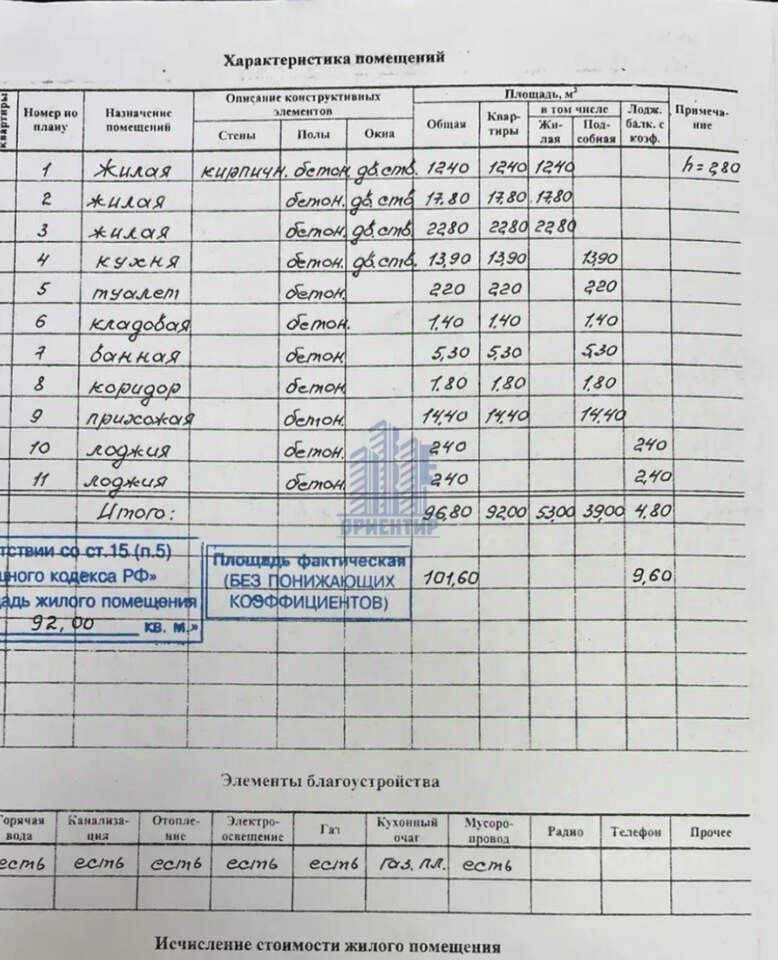 Характеристика помещений
квартиры
Номер по плану
Назначение помещений
Описание конструктивных элементов
Стены
Полы
Окна
Площадь, м²
Общая
Квартиры
в том числе
Жилая
Подсобная
Лодж. балк. с коэф.
Примечание
1 Жилая кирпичн. бетон. дв.ств. 12,40 12,40 12,40 h=2,80
2 жилая бетон. дв.ств. 17.80 17,80 17.80
3 жилая бетон. дв.ств. 22,80 22,80 22,80
4 кухня бетон. дв.ств. 13,90 13,90 13,90
5 туалет бетон. 2,20 2,20 2,20
6 кладовая бетон. 1,40 1,40 1,40
7 ванная бетон 5,30 5,30 5,30
8 коридор бетон. 1.80 1.80 1.80
9 прихожая бетон. 14,40 14.40 14,40
10 лоджия бетон. 2,40 2,40
11 лоджия бетон. 2,40 2,40
Итого: 96,80 92,00 53,00 39,00 4,80
ОРИЕНТИР
тствии со ст.15 (п.5)
щного кодекса РФ»
адь жилого помещения
92,00 кв. м.»
Площадь фактическая
(БЕЗ ПОНИЖАЮЩИХ
КОЭФФИЦИЕНТОВ)
101,60 9,60
Элементы благоустройства
Горячая вода
Канализация
Отопление
Электроосвещение
Газ
Кухонный очаг
Мусоропровод
Радио
Телефон
Прочее
есть есть есть есть есть газ. пл. есть
Исчисление стоимости жилого помещения